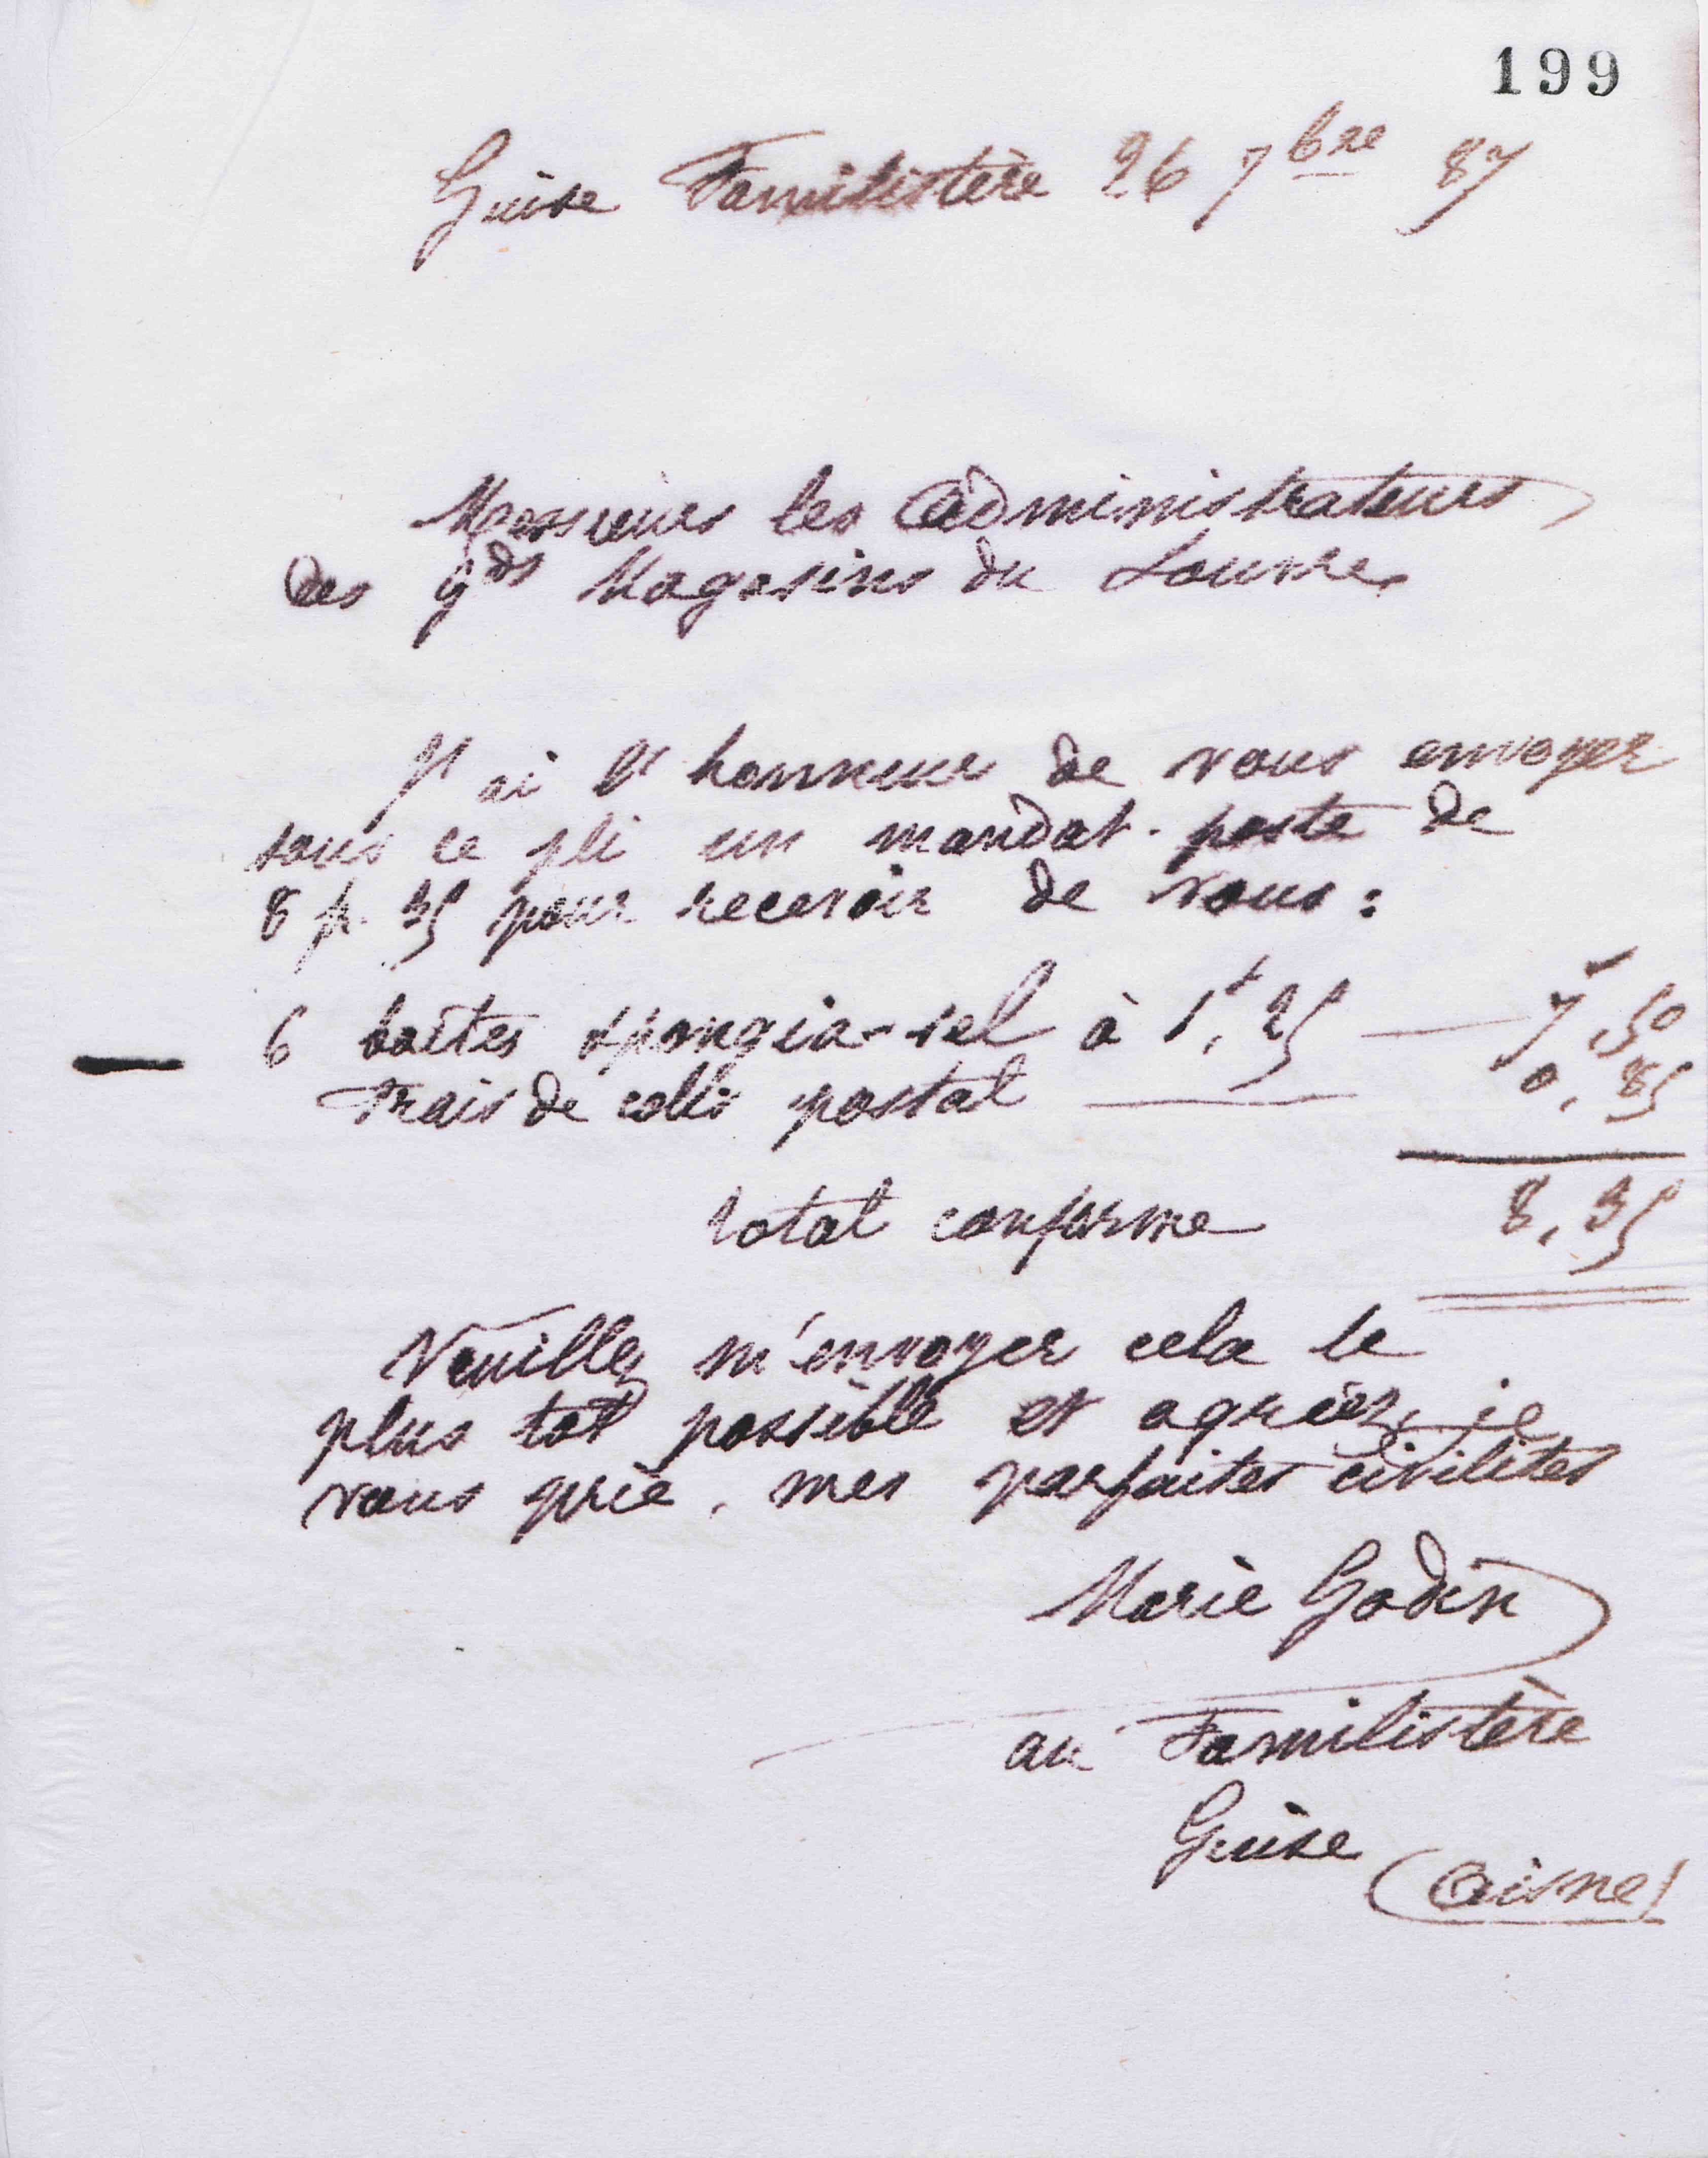 199
Guise Familistère 26 7bre 87
Messieurs les Administrateurs
des gds Magasins du Louvre
J'ai l'honneur de vous envoyer
sous ce pli un mandat-poste de
8 fr. 35 pour recevoir de vous :
6 boîtes spongia-sel à 1f, 25 — 7,50
Frais de colis postal — 0,85
total conforme 8,35
Veuillez m'envoyer cela le
plus tôt possible et agréer, je
vous prie, mes parfaites civilités
Marie Godin
au Familistère
Guise
(Aisne)